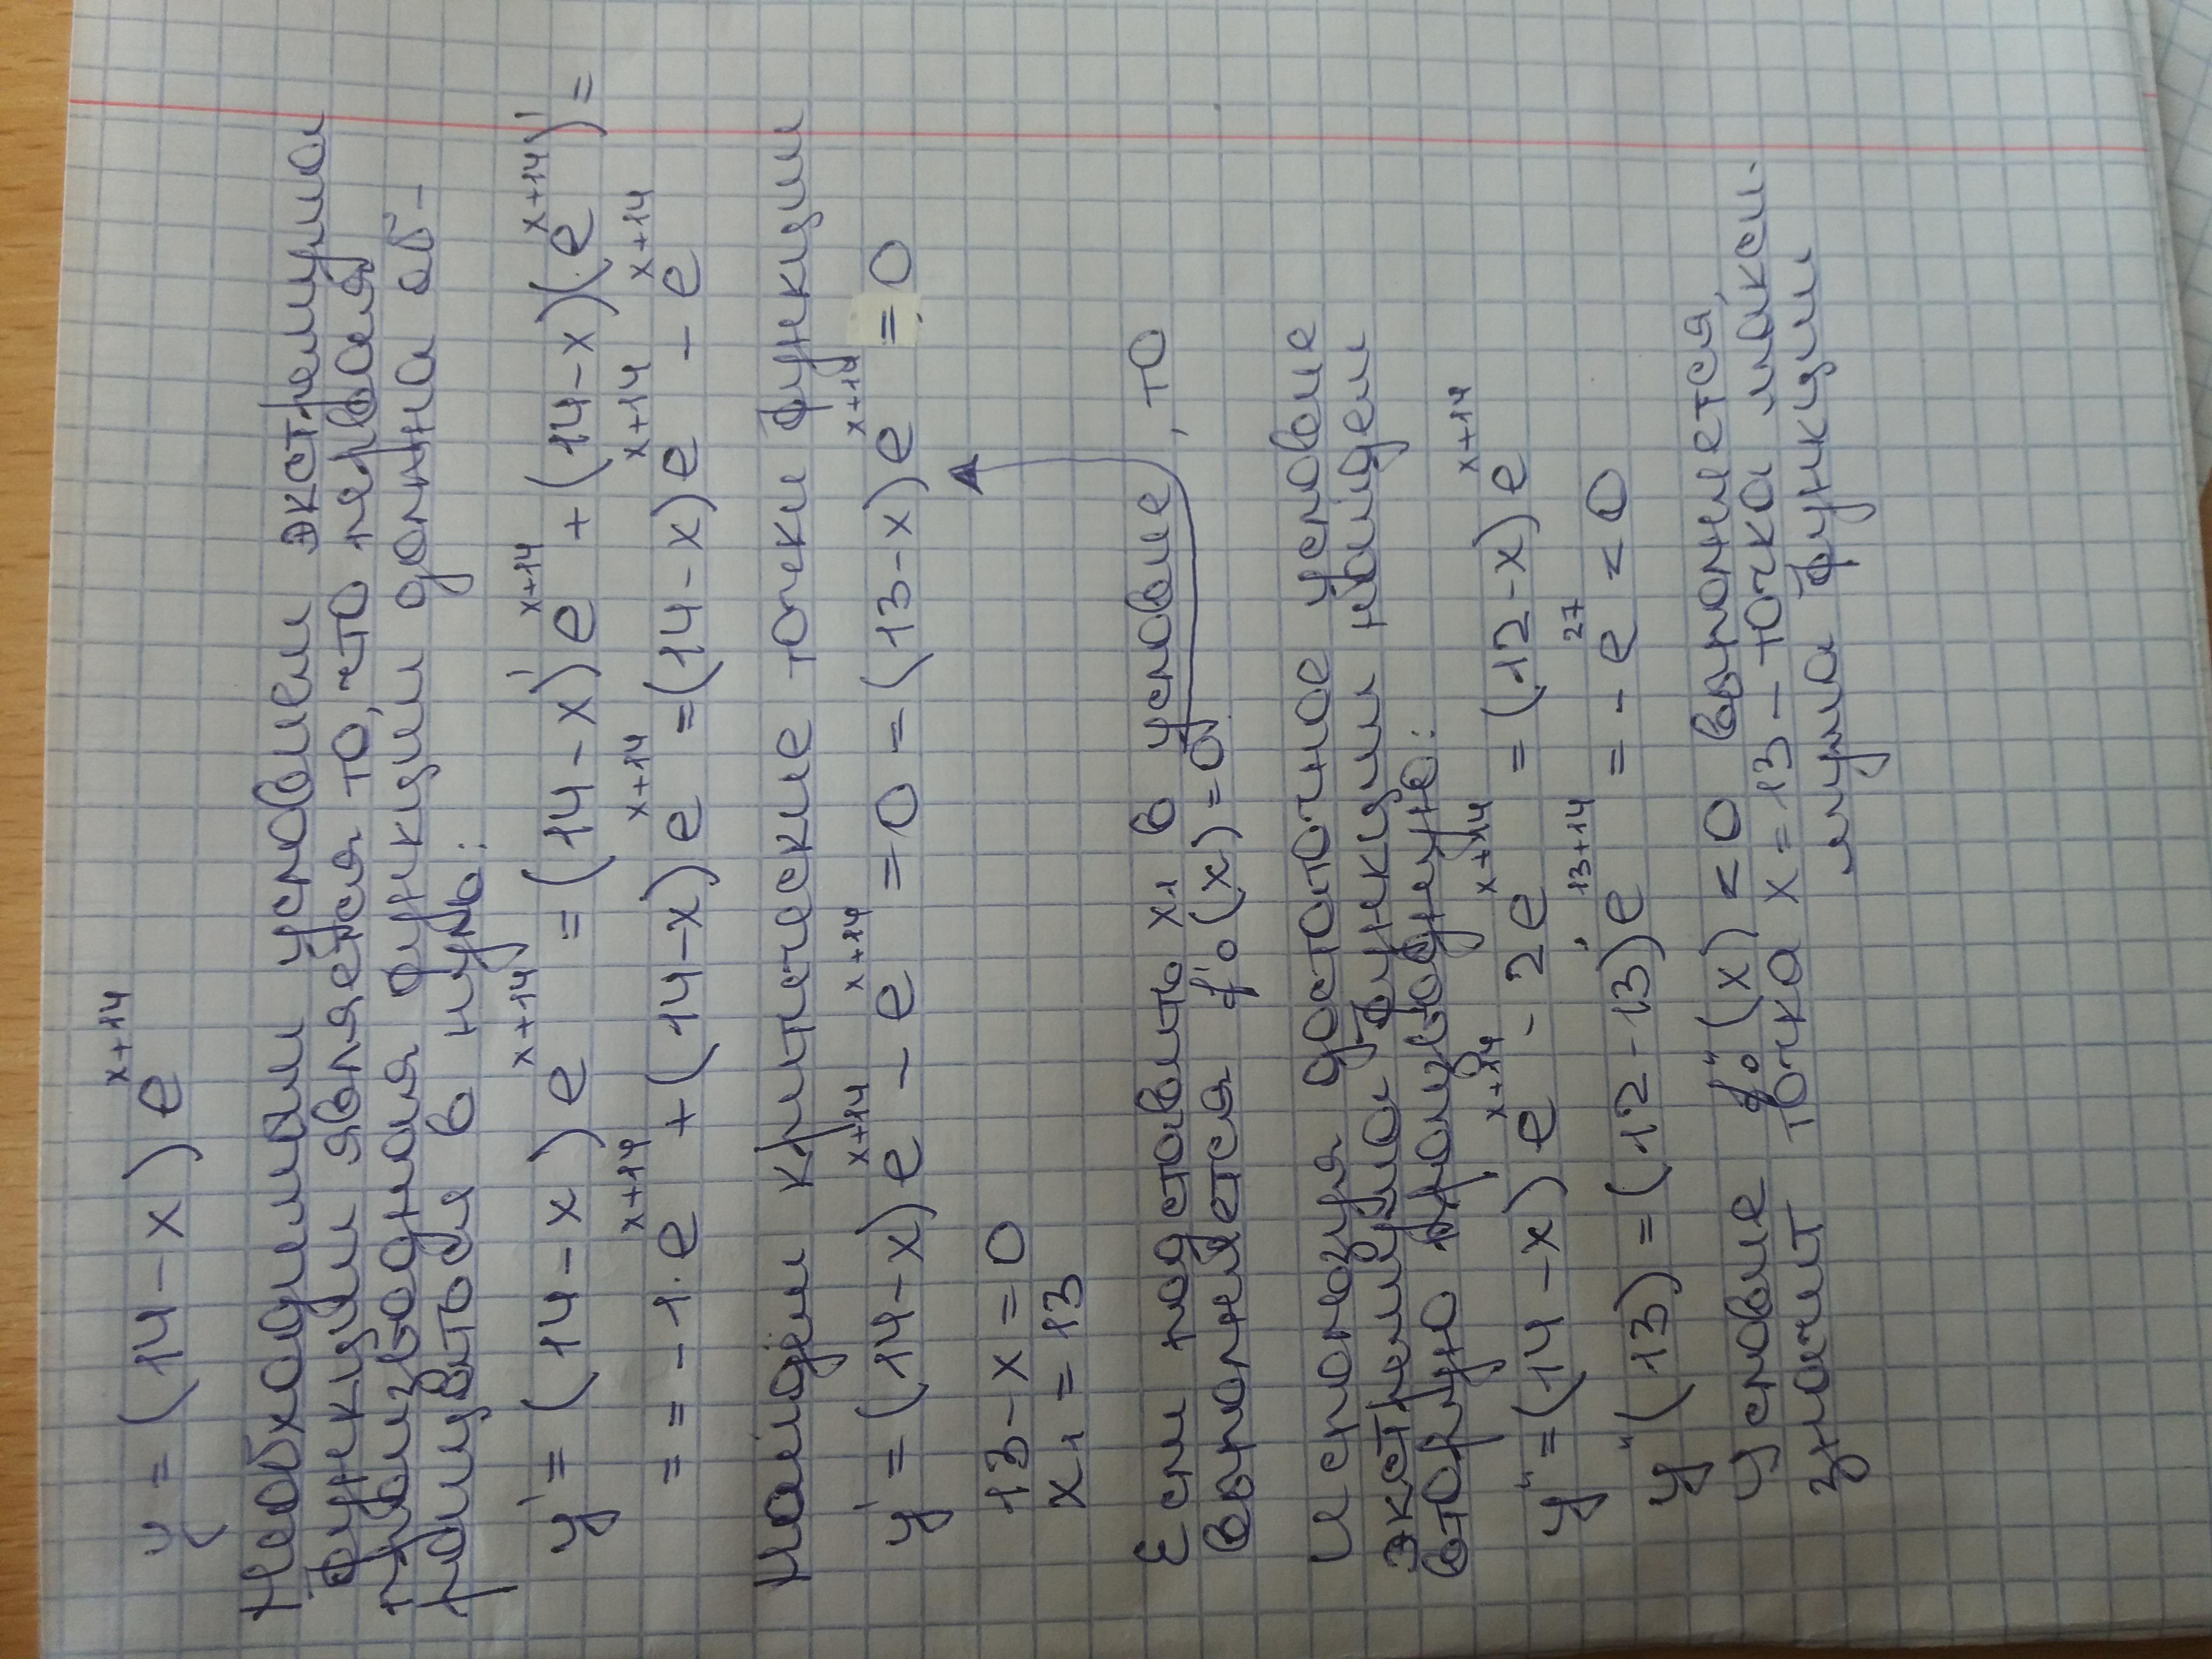 y = (14 - x) e^{x+14}
Необходимым условием экстремума
функции является то, что первая
производная функции должна об-
ратиться в нуль:
y' = (14 - x) e^{x+14} = (14 - x)' e^{x+14} + (14 - x)(e^{x+14})' =
= = -1 · e^{x+14} + (14 - x) e^{x+14} = (14 - x) e^{x+14} - e^{x+14}
Найдём критические точки функции
y' = (14 - x) e^{x+14} - e^{x+14} = 0 = (13 - x) e^{x+14} = 0
13 - x = 0
x₁ = 13
Если подставить x₁ в условие, то
выполняется f'₀(x) = 0
используя достаточное условие
экстремума функции найдем
вторую производную:
y'' = (14 - x) e^{x+14} - 2e^{x+14} = (12 - x) e^{x+14}
y''(13) = (12 - 13) e^{13+14} = - e^{27} < 0
Условие f₀''(x) < 0 выполняется,
значит точка x = 13 - точка макси-
мума функции